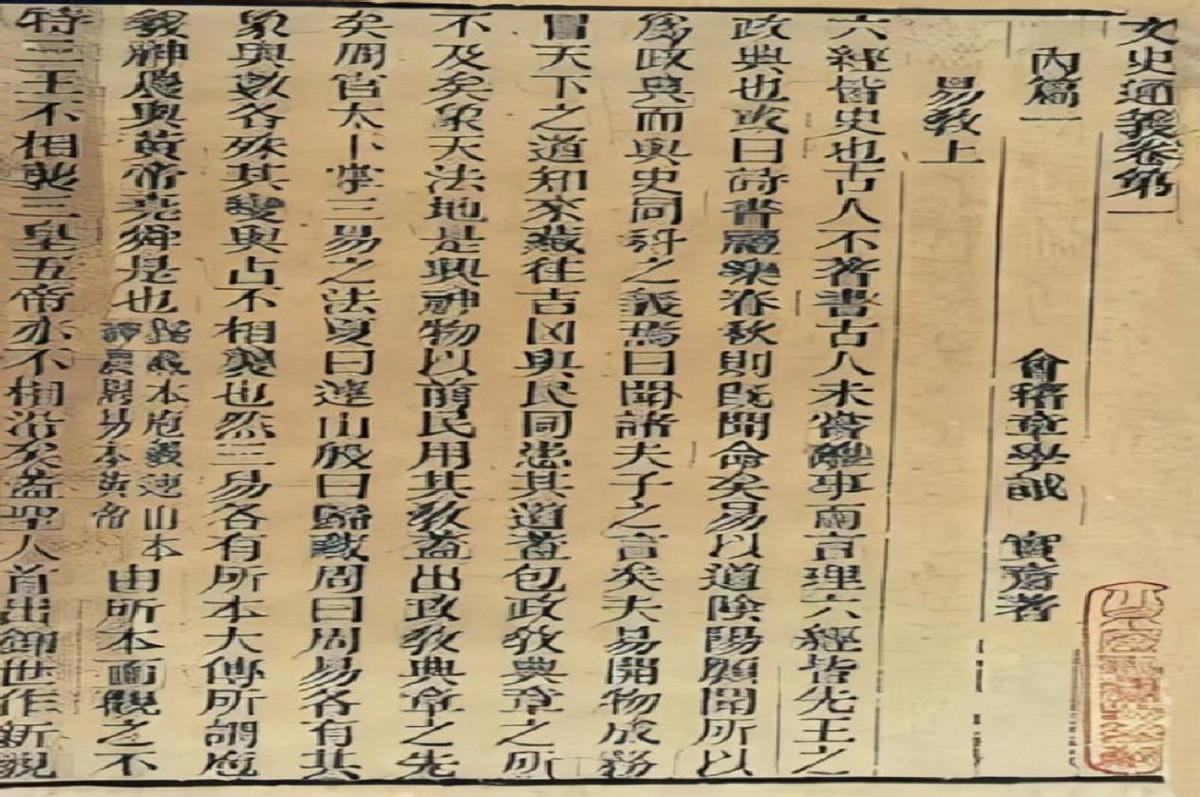 文史通義卷第一
內篇一
會稽章學誠 實齋著
易教上
六經皆史也古人不著書古人未嘗離事而言理六經皆先王之
政典也或曰詩書禮樂春秋則既聞命矣易以道陰陽願聞所以
爲政典而與史同科之義焉曰聞諸夫子之言矣夫易開物成務
冒天下之道知來藏往吉凶與民同患其道蓋包政教典章之所
不及矣象天法地是興神物以前民用其教蓋出政教典章之先
矣周官太卜掌三易之法夏曰連山殷曰歸藏周曰周易各有其
象與數各殊其變與占不相襲也然三易各有所本大傳所謂庖
羲神農與黃帝堯舜是也歸藏本庖羲連山本神農周易本黃帝由所本而觀之不
特三王不相襲三皇五帝亦不相沿矣蓋聖人首出御世作新視